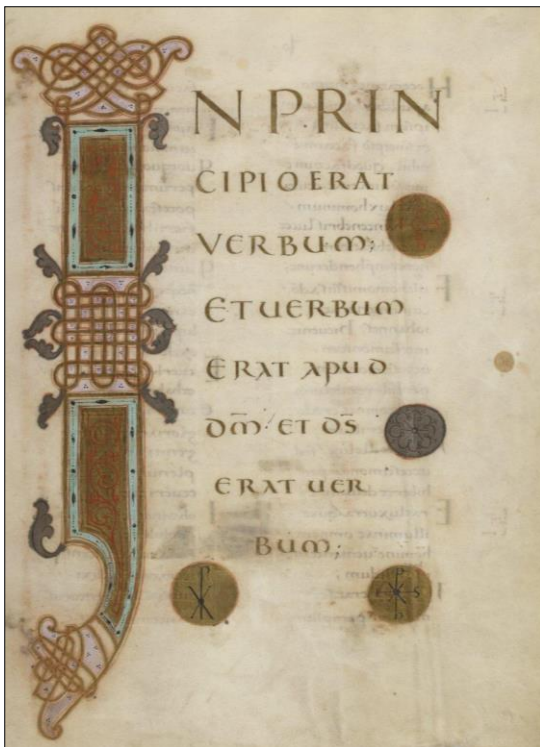 IN PRIN
CIPIO ERAT
VERBUM;
ET UERBUM
ERAT APUD
DM̄· ET DS̄
ERAT UER
BUM;